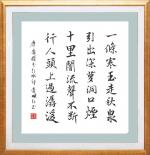 一條寒玉走秋泉
引出深蘿洞口煙
十里闇流聲不斷
行人頭上過潺湲